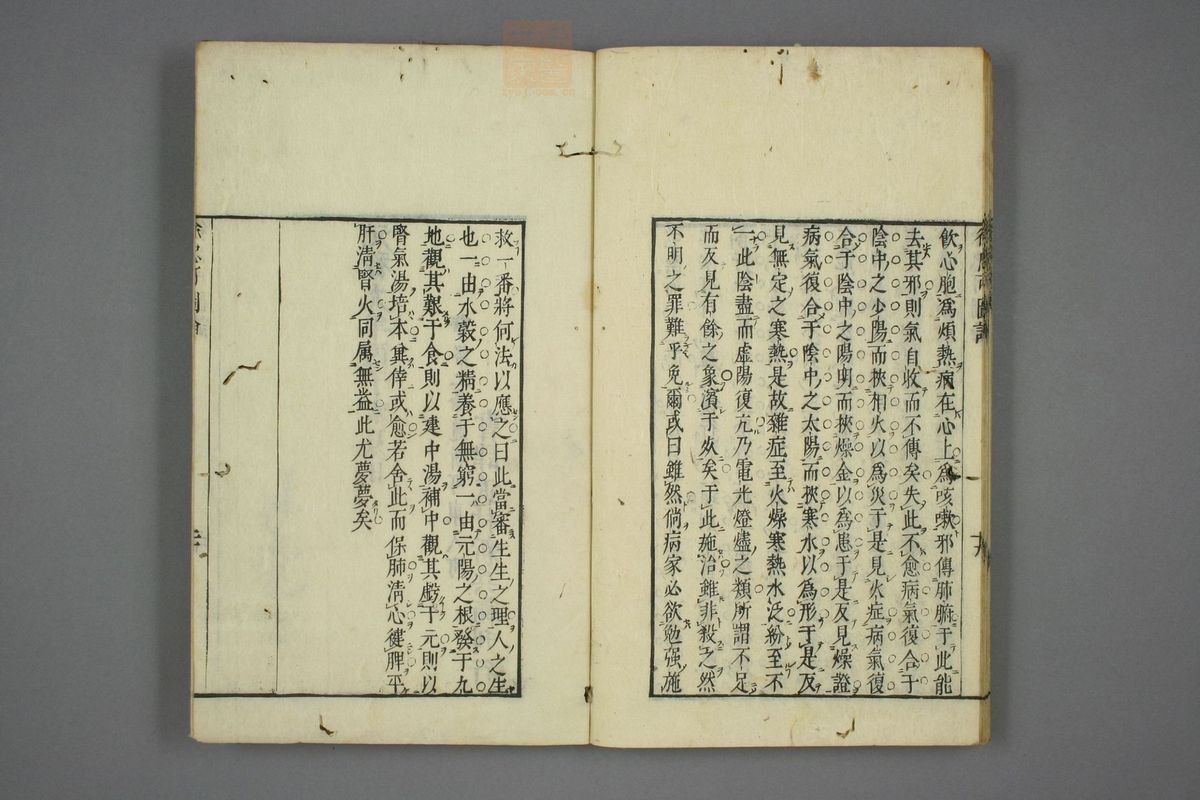 飲心胞爲煩熱病在心上爲咳嗽邪傳肺腑于此能
去其邪則氣自收而不傳矣失此不愈病氣復合于
陰中之少陽而挾相火以爲災于是見火症病氣復
合于陰中之陽明而挾燥金以爲患于是反見燥證
病氣復合于陰中之太陽而挾寒水以爲形于是反
見無定之寒熱是故雜症至火燥寒熱水泛紛至不
一此陰盡而虛陽復亢乃電光燈燼之類所謂不足
而反見有餘之象濱于死矣于此施治雖非殺之然
不明之罪難乎免爾或曰雖然倘病家必欲勉强施
救一番將何法以應之曰此當審生生之理人之生
也一由水穀之精養于無窮一由元陽之根發于九
地觀其艱于食則以建中湯補中觀其虧于元則以
腎氣湯培本其倖或愈若舍此而保肺清心健脾平
肝清腎火同属無益此尤夢夢矣